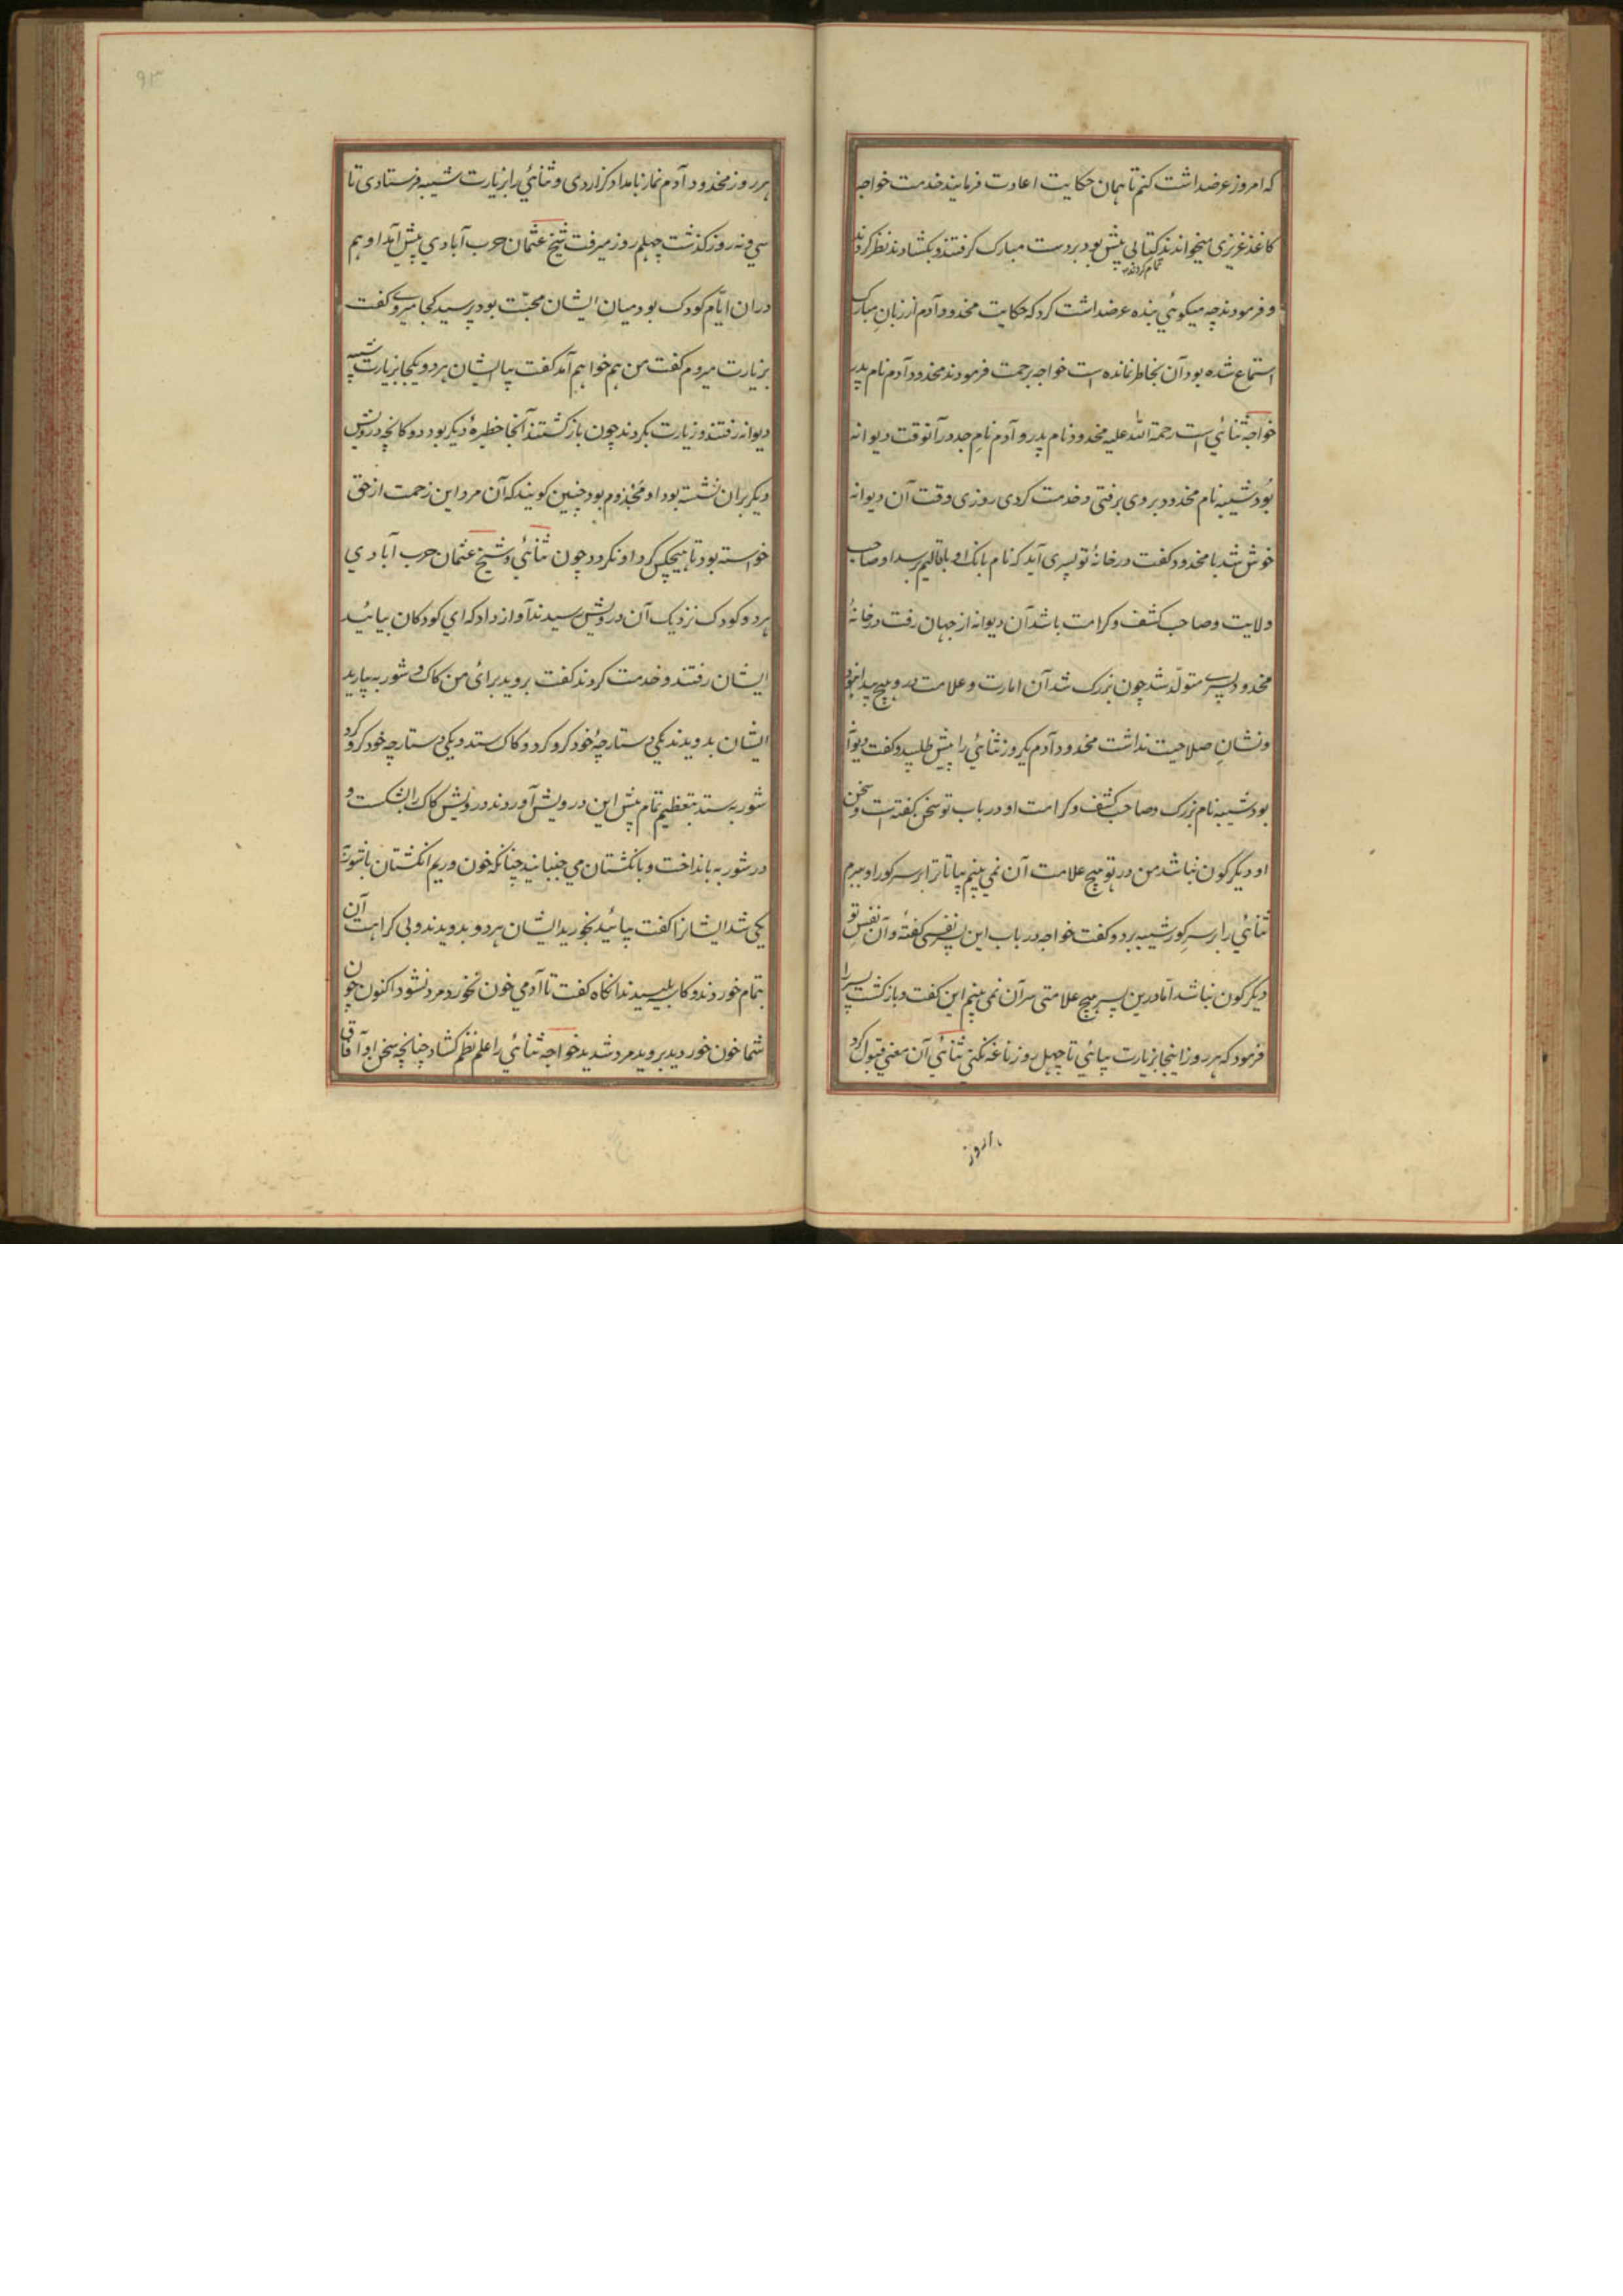 که امروز عرضداشت کنم تا همان حکایت اعادت فرمایند خدمت خواجه
کاغذ عزیزی میخواندند کتابی پیش بود بر دست مبارک گرفتند و بکشادند نظر کردند
تمام کردند
و فرمودند چه میکوئي بنده عرضداشت کرد که حکایت مخدود آدم از زبانِ مبارک
استماع شده بود آن بخاطر نمانده است خواجه برحمت فرمودند مخدود آدم نام پدر
خواجه ثنائي است رحمة الله علیه مخدود نام پدر و آدم نامِ جد در آنوقت دیوانه
بود شیبه نام مخدود بروی برفتی و خدمت کردی روزی وقت آن دیوانه
خوش شد با مخدود کفت در خانهٔ تو پسری آید که نام بانک او باقالیم برسد او صاحب
ولایت و صاحب کشف و کرامت باشد آن دیوانه از جهان رفت در خانهٔ
مخدود پسرے متولّد شد چون بزرک شد آن امارت و علامت در و هیچ پیدا نبود
و نشانِ صلاحیت نداشت مخدود آدم یکروز ثنائي را پیش طلبید و کفت دیوانه
بود شیبه نام بزرک و صاحب کشف و کرامت او در باب تو سخن کفته است و سخن
او دیگر کون نباشد من در تو هیچ علامت آن نمی بینم بیا تا ترا بر سر کور او برم
ثنائي را بر سرِ کور شیبه برد و کفت خواجه در باب این پسر نفسی کفتهٔ و آن نفسِ تو
دیکر کون نباشد امّا درین پسر هیچ علامتی سر آن نمی بینم این کفت و باز کشت پسر را
فرمود که هر روز اینجا بزیارت بیائي تا چهل روز ناغه نکنی ثنائي آن معني قبول کرد
هر روز
هر روز مخدود آدم نماز بامداد کزاردی و ثنائي را بزیارت شیبه فرستادی تا
سي و نه روز کذشت چهلم روز میرفت شیخ عثمان حرب آبادي پیش آمد او هم
در ان ایّام کودک بود میانِ ایشان محبّت بود پرسید کجا میروے کفت
بزیارت میروم کفت من هم خواهم آمد کفت بیا ایشان هر دو یکجا بزیارت شیبه
دیوانه رفتند و زیارت بکردند چون باز کشتند آنجا خطیرهٔ دیکر بود دوکانچه درویش
دیکر بر ان نشسته بود او مجذوم بود چنین کویند که آن مرد این زحمت از حق
خواسته بود تا هیچکس کرد او نکردد چون ثنائي و شیخ عثمان حرب آبادي
هر دو کودک نزدیک آن درویش رسیدند آواز داد که اي کودکان بیائید
ایشان رفتند و خدمت کردند کفت بروید برائ من کاک و شوربه بیارید
ایشان بدویدند یکی دستارچهٔ خود کرو کرد و کاک ستد و یکي دستارچه خود کرو کرد
شوربه ستد بتعظیم تمام پیش این درویش آوردند درویش کاک را بشکست و
در شوربه بانداخت و بانکشتان مي جنبانید چنانکه خون و ریم انکشتان با شوربه
یکي شد ایشانرا کفت بیائید بخورید ایشان هر دو بدویدند و بی کراهت آن
بتمام خوردند و کاسه بلیسیدند انکاه کفت تا آدمي خون نخورد مرد نشود اکنون چون
شما خون خوردید بروید مرد شدید خواجه ثنائي را علم نظم کشاد چنانچه سخن او آفاق